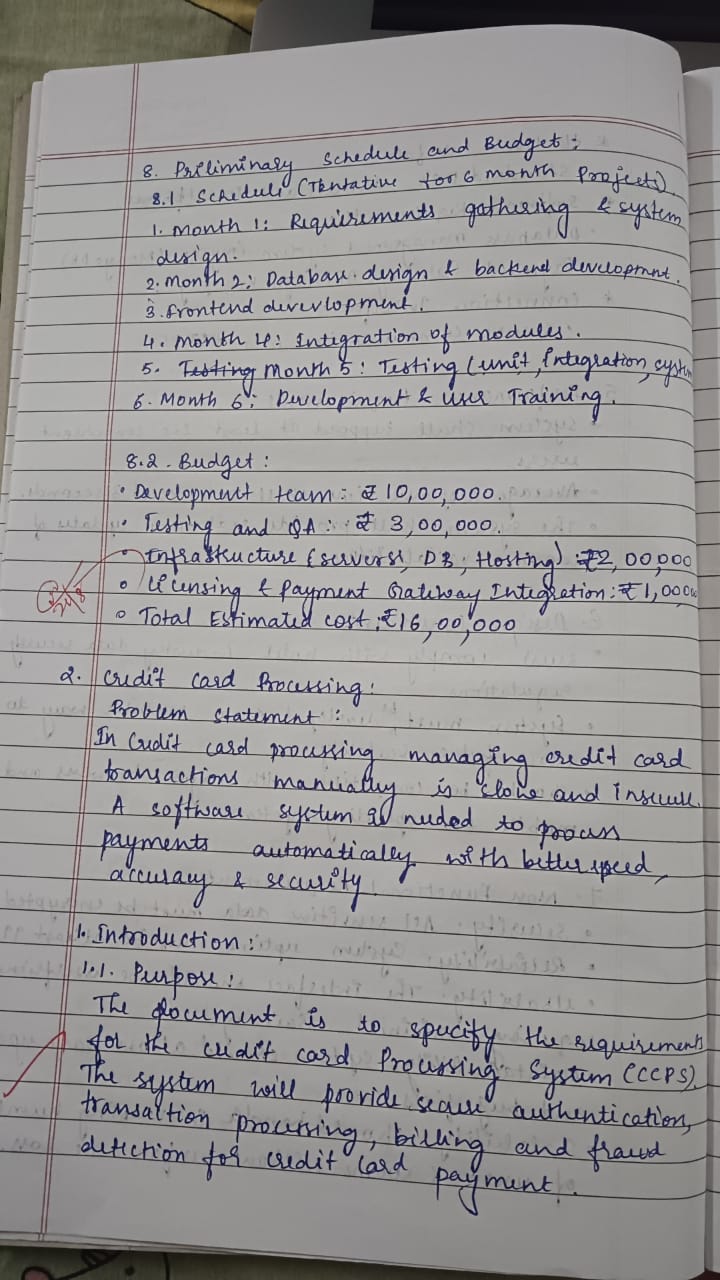 8. Priliminary Schedule and Budget :
8.1 Schedule (Tentative for 6 month Project)
1. month 1: Requirements gathering & system
design.
2. month 2: Database design & backend development.
3. frontend development.
4. month 4: Integration of modules.
5. Testing Month 5: Testing (unit, Integration, system
6. Month 6: Development & User Training.
8.2. Budget :
• Development team: ₹ 10,00,000.
• Testing and QA: ₹ 3,00,000.
• Infrastructure (servers, DB, Hosting) : ₹2,00,000
• Licensing & Payment Gateway Integration: ₹1,000
• Total Estimated cost: ₹16,00,000
2. Credit Card Processing:
Problem statement :
In Credit card processing managing credit card
transactions manually is slow and insecure.
A software system is needed to process
payments automatically with better speed,
accuracy & security.
1. Introduction:
1.1. Purpose:
The document is to specify the requirements
for the credit card Processing System (CCPS).
The system will provide secure authentication,
transaction processing, billing and fraud
detection for credit card payment.